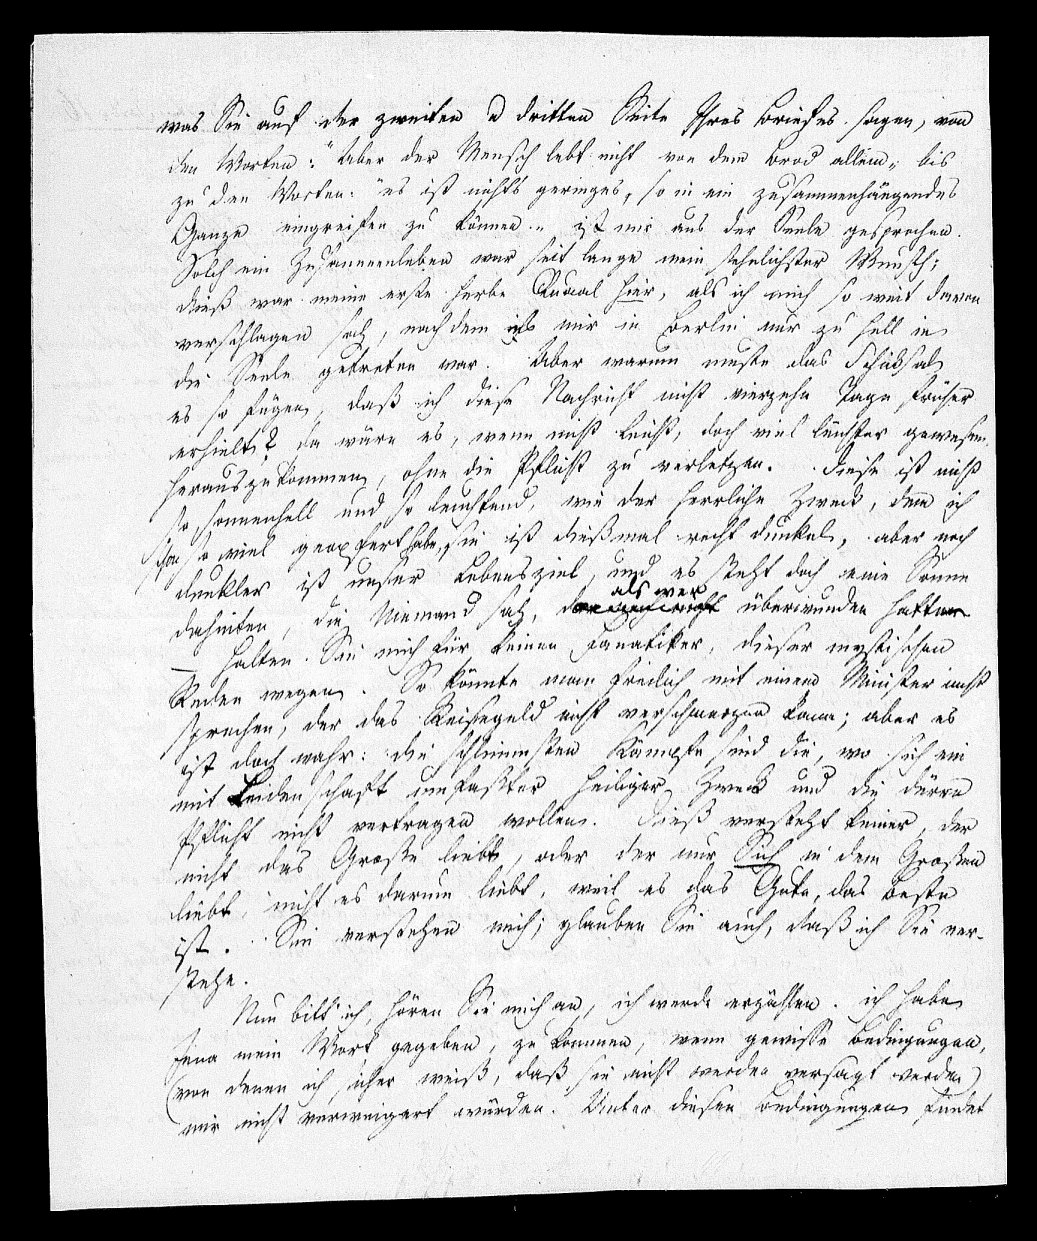 was Sie auf der zweiten u dritten Seite Ihres Briefes sagen, von
den Worten: "Aber der Mensch lebt nicht von dem Brod allein" bis
zu den Worten: "es ist nichts geringes, so in ein zusammenhängendes
Ganze eingreifen zu können" ist mir aus der Seele gesprochen.
Solch ein Zusammenleben war seit lange mein sehnlichster Wunsch;
dieß war meine erste herbe Quaal hier, als ich mich so weit davon
verschlagen sah, nachdem es mir in Berlin nur zu hell in
die Seele getreten war. Aber warum muste das Schiksal
es so fügen, daß ich diese Nachricht nicht vierzehn Tage früher
erhielt? da wäre es, wenn nicht leicht, doch viel leichter gewesen
herauszukommen, ohne die Pflicht zu verletzen. Diese ist nicht
so sonnenhell und so leuchtend, wie der herrliche Zweck, dem ich
schon so viel geopfert habe, sie ist dießmal recht dunkel, aber noch
dunkler ist unser Lebensziel, und es steht doch eine Sonne
dahinten, die Niemand sah, als wer überwunden hatte
— Halten Sie mich für keinen Fanatiker, dieser mystischen
Reden wegen. So könnte man freilich mit einem Minister nicht
sprechen, der das Reisegeld nicht verschmerzen kann; aber es
ist doch wahr: die schlimmsten Kämpfe sind die, wo sich ein
mit Leidenschaft umfaßter heiliger Zweck und die dürre
Pflicht nicht vertragen wollen. Dieß versteht keiner, der
nicht das Große liebt, oder der nur Sich in dem Großen
liebt, nicht es darum liebt, weil es das Gute, das Beste
ist. Sie verstehen mich; glauben Sie auch, daß ich Sie ver-
stehe.
Nun bitt' ich, hören Sie mich an, ich werde erzählen. ich habe
Jena mein Wort gegeben, zu kommen, wenn gewisse Bedingungen,
(von denen ich sicher weiß, daß sie nicht werden versagt werden)
mir nicht verweigert würden. Unter diesen Bedingungen findet